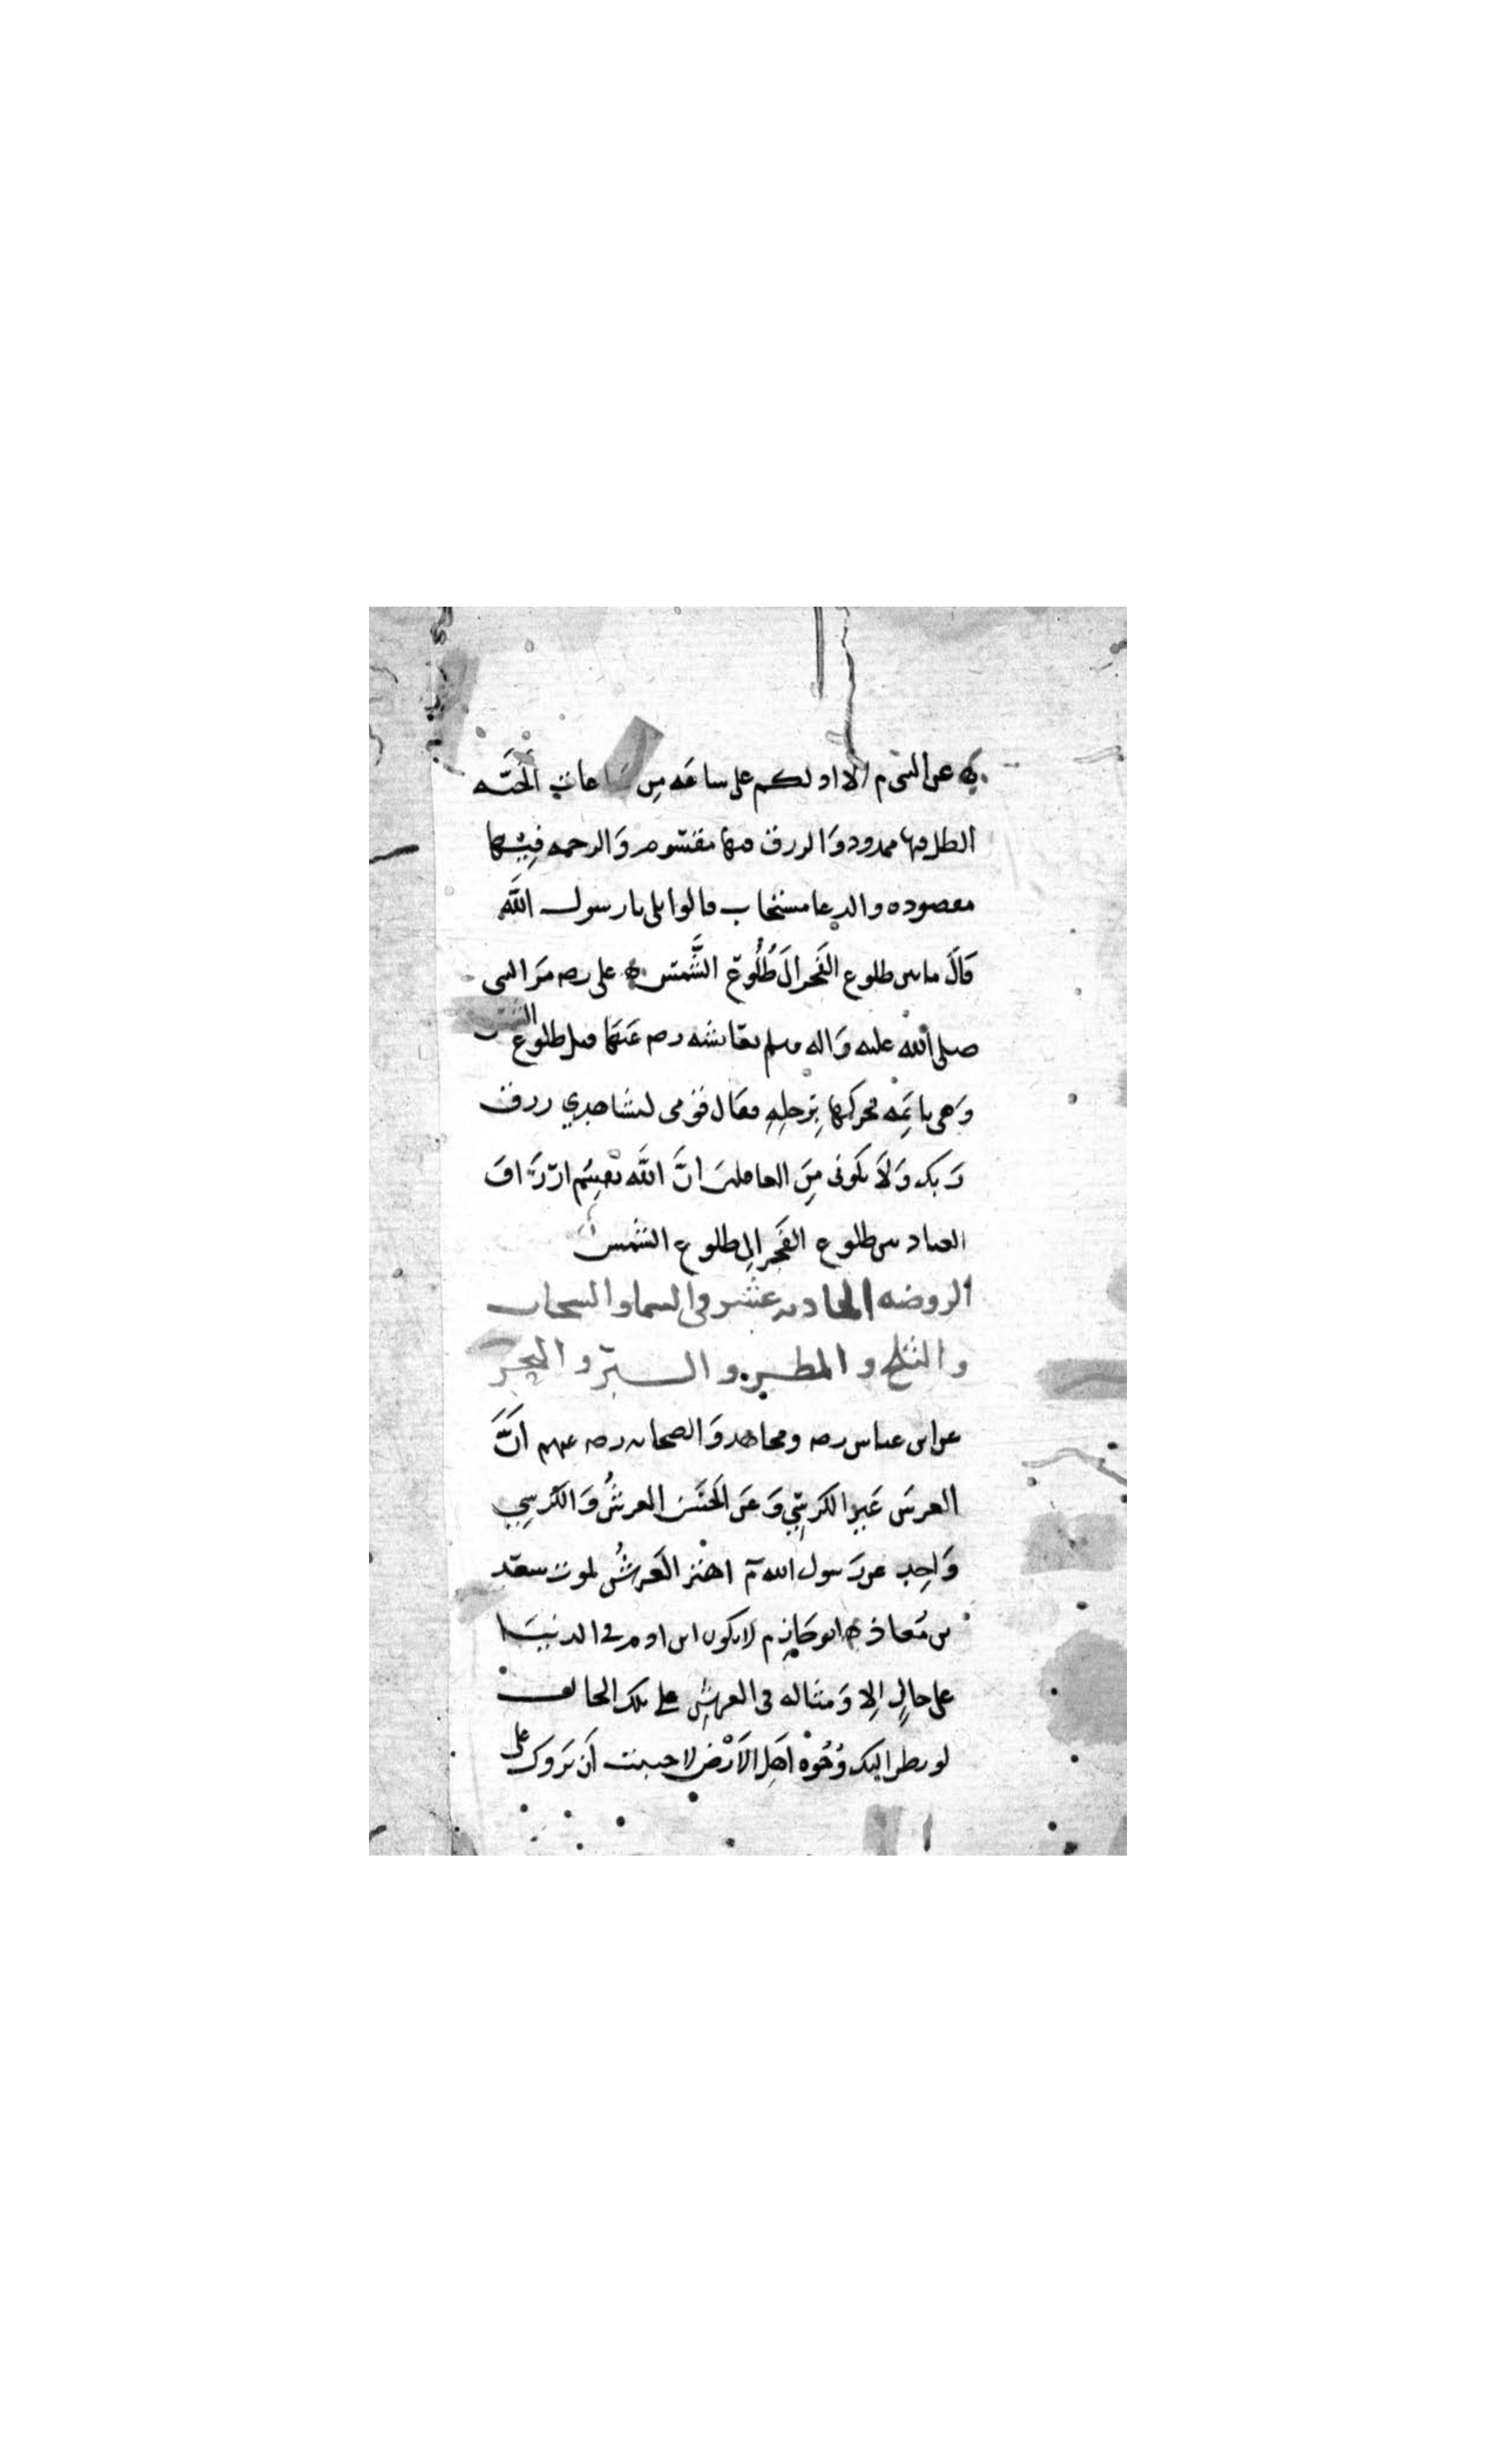 عن النبي م الا ادلكم على ساعه من ساعات الجنه
الظل فيها ممدود والرزق فيها مقسوم والرحمه فيها
والدعا مستجاب قالوا بلى يا رسول الله
قال ما بين طلوع الفجر الى طلوع الشمس ه على رصه مر النبي
صلى الله عليه واله وسلم بعايشه رصه عنها قبل طلوع الشمس
وهي نايمه فحركها برجله فقال قومي لتشاهدي رزق
ربك ولا تكوني من الغافلين ان الله يقسم ارزاق
العباد بين طلوع الفجر الى طلوع الشمس
الروضه الحاديه عشر في السما والسحاب
والثلج والمطر والبر والبحر
عن ابن عباس رصه ومجاهد والضحاك رصه عنهم ان
العرش غير الكرسي وعن الحسن العرش والكرسي
واحد عن رسول الله م اهتز العرش لموت سعد
بن معاذ ه ابو حازم لا يكون ابن ادم في الدنيا
على حال الا ومثاله في العرش على تلك الحال
لو نظر اليك وجوه اهل الارض لاحببت ان يروك على